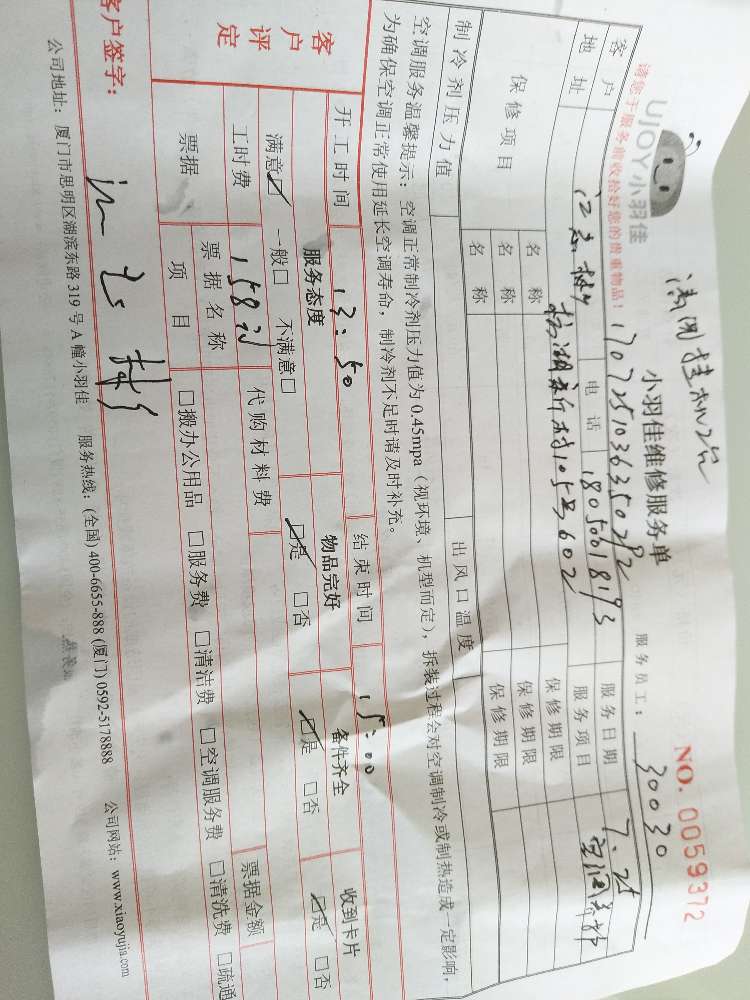 UJOY小羽佳
小羽佳维修服务单
NO. 0059372
请您于服务前收拾好您的贵重物品！
1707251036350292
服务员工： 30030
客户
电话 18050018193
服务日期 7.25
地址
602
服务项目
保修项目 名称 保修期限
名称 保修期限
名称 保修期限
制冷剂压力值 出风口温度
空调服务温馨提示：空调正常制冷剂压力值为0.45mpa（视环境、机型而定），拆装过程会对空调制冷或制热造成一定影响，
为确保空调正常使用延长空调寿命，制冷剂不足时请及时补充。
开工时间 13:50 结束时间 15:00
客户评定
服务态度 物品完好 备件齐全 收到卡片
满意☑ 一般□ 不满意□ ☑是 □否 ☑是 □否 ☑是 □否
工时费 158 代购材料费 票据金额
票据 票据名称
项目 □搬办公用品 □服务费 □清洁费 □空调服务费 □清洗费 □疏通
客户签字：
公司地址：厦门市思明区湖滨东路319号A幢小羽佳 服务热线：(全国) 400-6655-888 (厦门) 0592-5178888 公司网站：www.xiaoyujia.com